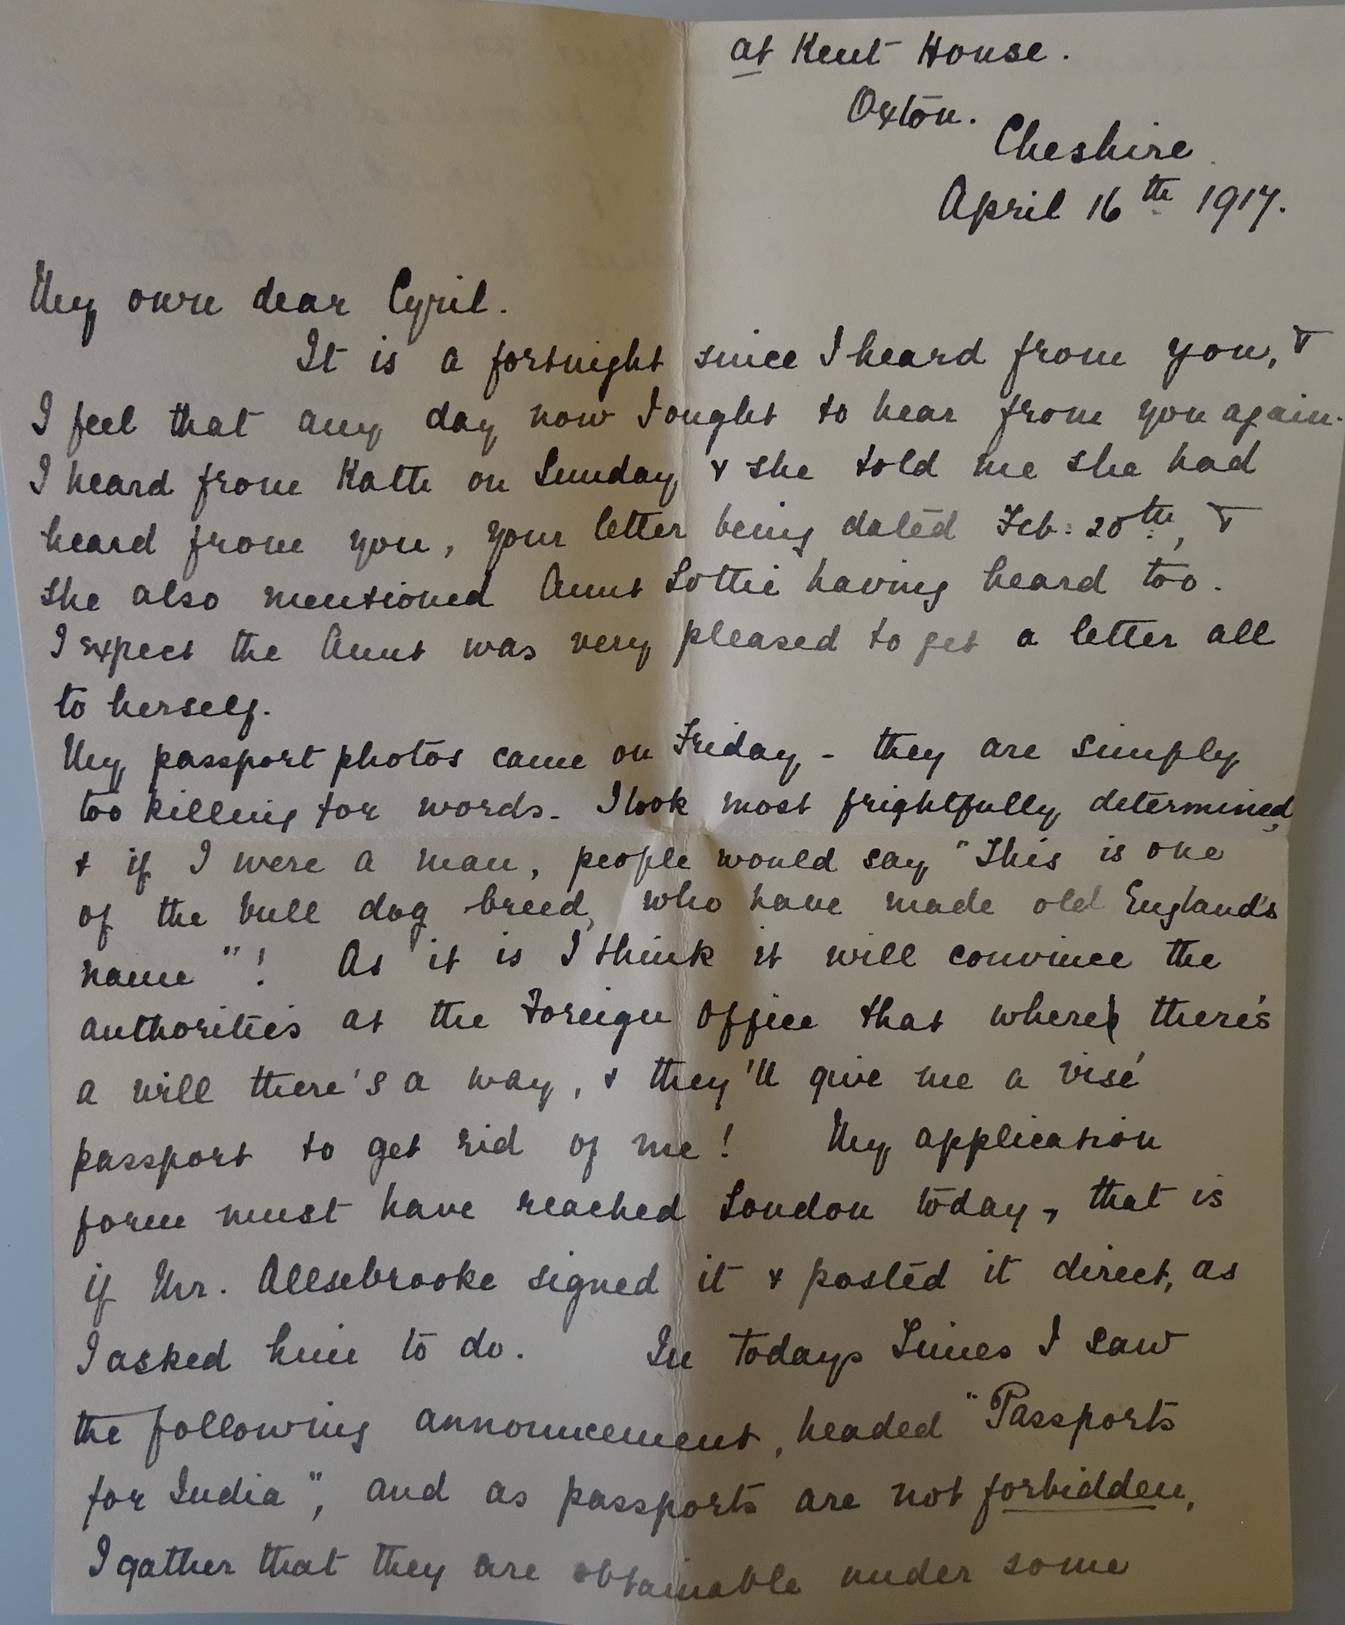 at Kent House.
Oxton.
Cheshire.
April 16th 1917.
My own dear Cyril.
It is a fortnight since I heard from you, &
I feel that any day now I ought to hear from you again.
I heard from Kath on Sunday & she told me she had
heard from you, your letter being dated Feb: 20th, &
she also mentioned Aunt Lottie having heard too.
I expect the Aunt was very pleased to get a letter all
to herself.
My passport photos came on Friday - they are simply
too killing for words. I look most frightfully determined,
& if I were a man, people would say "This is one
of the bull dog breed, who have made old England's
name"! As it is I think it will convince the
authorities at the Foreign Office that where there's
a will there's a way, & they'll give me a visé
passport to get rid of me! My application
form must have reached London today, that is
if Mr. Allsebrooke signed it & posted it direct, as
I asked him to do. In todays Times I saw
the following announcement, headed "Passports
for India", and as passports are not forbidden,
I gather that they are obtainable under some